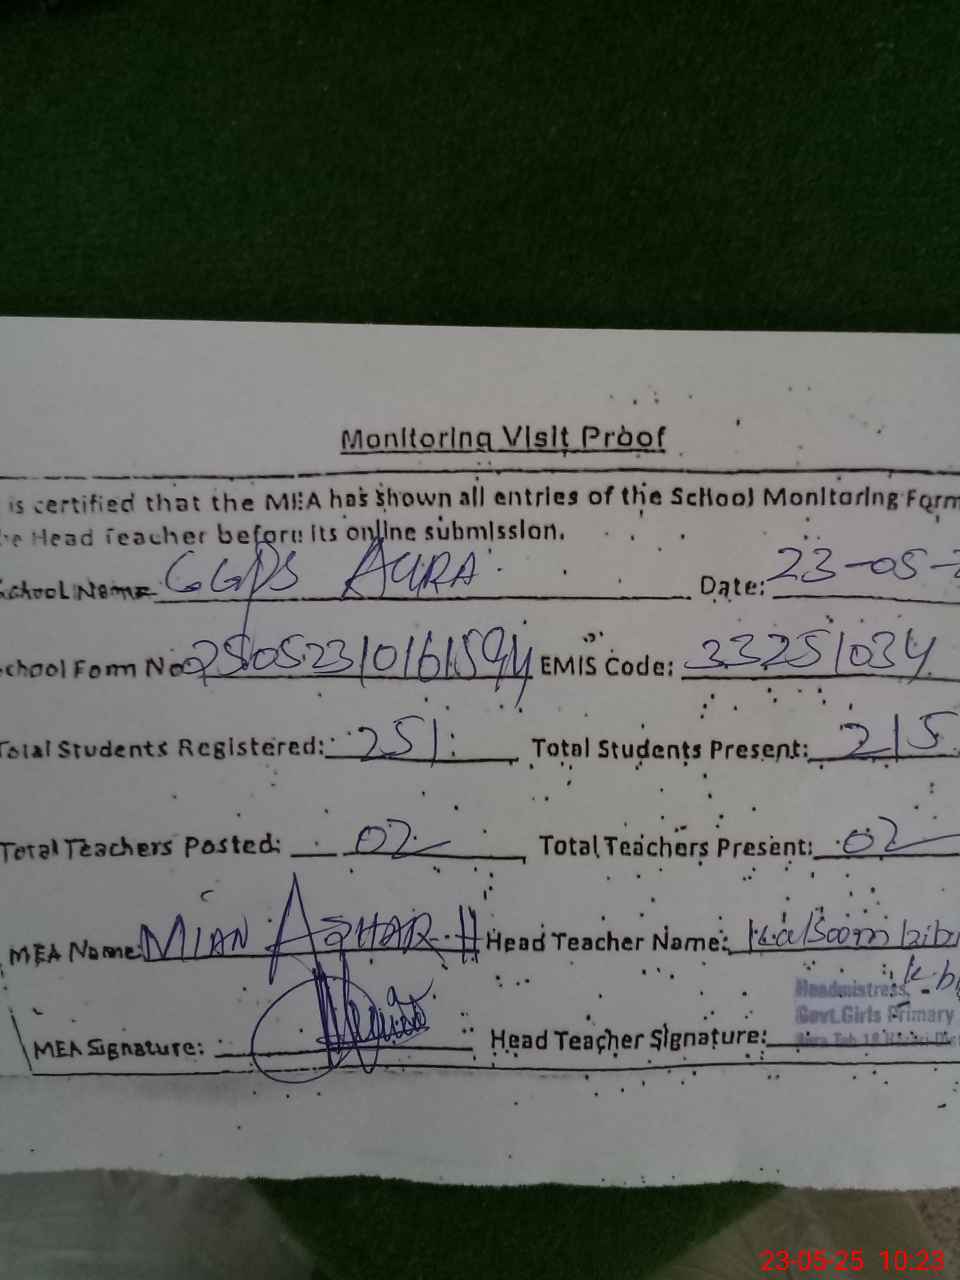 Monitoring Visit Proof
is certified that the MEA has shown all entries of the School Monitoring Form
e Head Teacher before its online submission.
School Name GGPS AGRA Date: 23-05-2
School Form No 25052310161594 EMIS Code: 33251034
Total Students Registered: 251 Total Students Present: 215
Total Teachers Posted: 02 Total Teachers Present: 02
MEA Name: MIAN ASGHAR H Head Teacher Name: Kalsoom bibi
K.b
Headmistress
Govt.Girls Primary
MEA Signature: Head Teacher Signature:
23-05-25 10:23